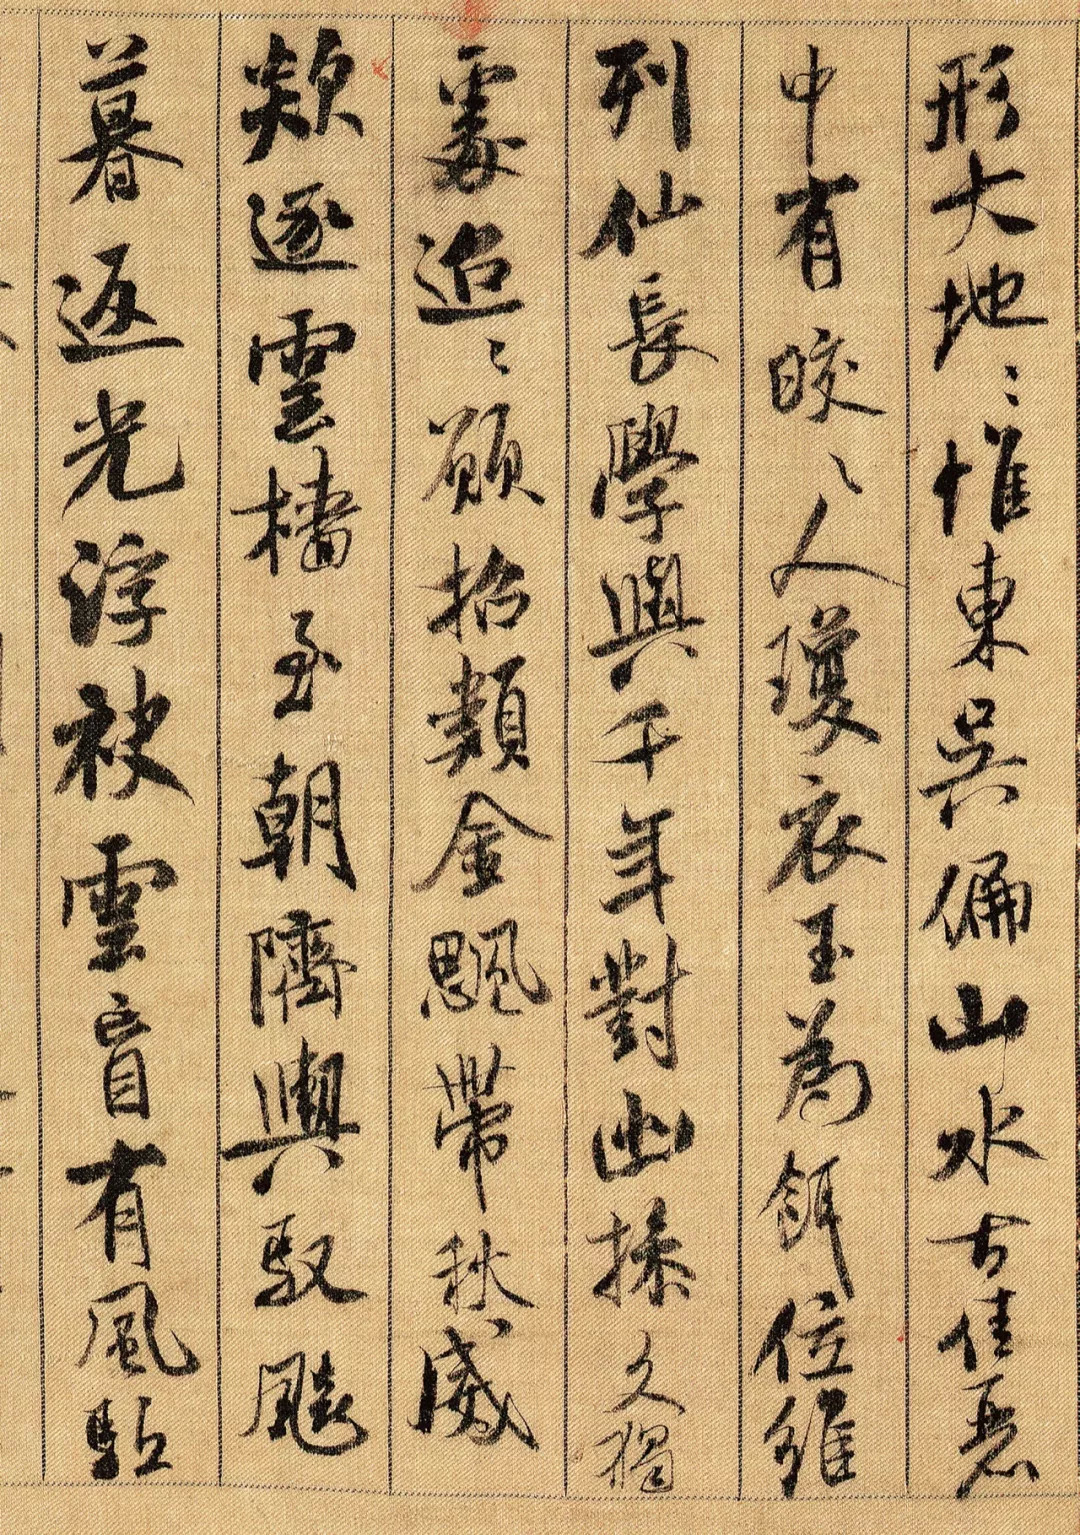 形大地〻惟東吳偏山水古佳麗
中有皎〻人瓊衣玉為餌位維
列仙長學與千年對幽操久獨
處迢〻願招類金颸帶秋威
欻逐雲檣至朝隮輿馭飈
暮返光浮袂雲盲有風駈